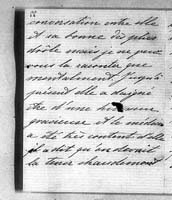 conversation entre elle
et sa bonne des plus
drôle mais je ne peux
vous la raconter que
mentalement. Jusqu'à
présent elle a daigné
être d'une
gracieuse et le médecin
a été très content d'elle
il a dit qu'on devait
la tenir chaudement